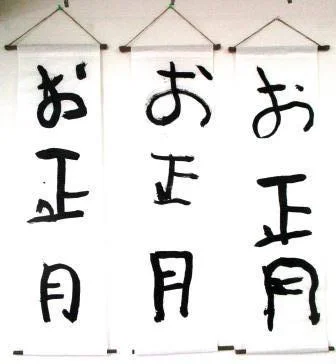 お正月
お正月
お正月